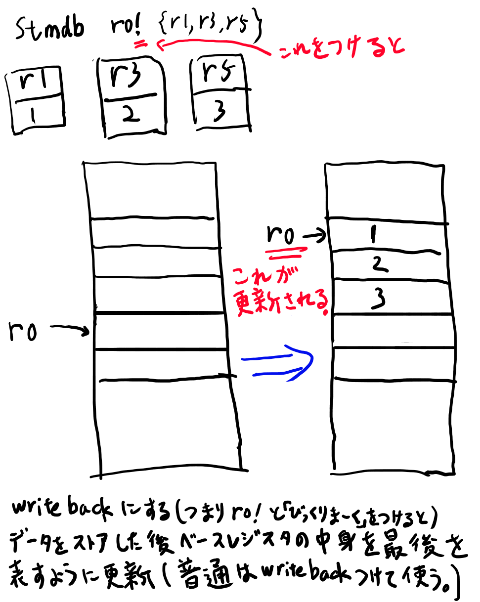 stmdb r0! {r1,r3,r5}
これをつけると
r1 r3 r5
1 2 3
r0→ 1
2
これが
更新される。
3
r0→
write backにする(つまりr0!と「びっくりまーく」をつけると)
データをストアした後ベースレジスタの中身を最後を
表すように更新(普通はwrite backつけて使う。)